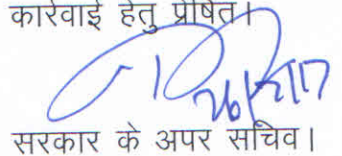 कार्रवाई हेतु प्रेषित।
26/12/17
सरकार के अपर सचिव।